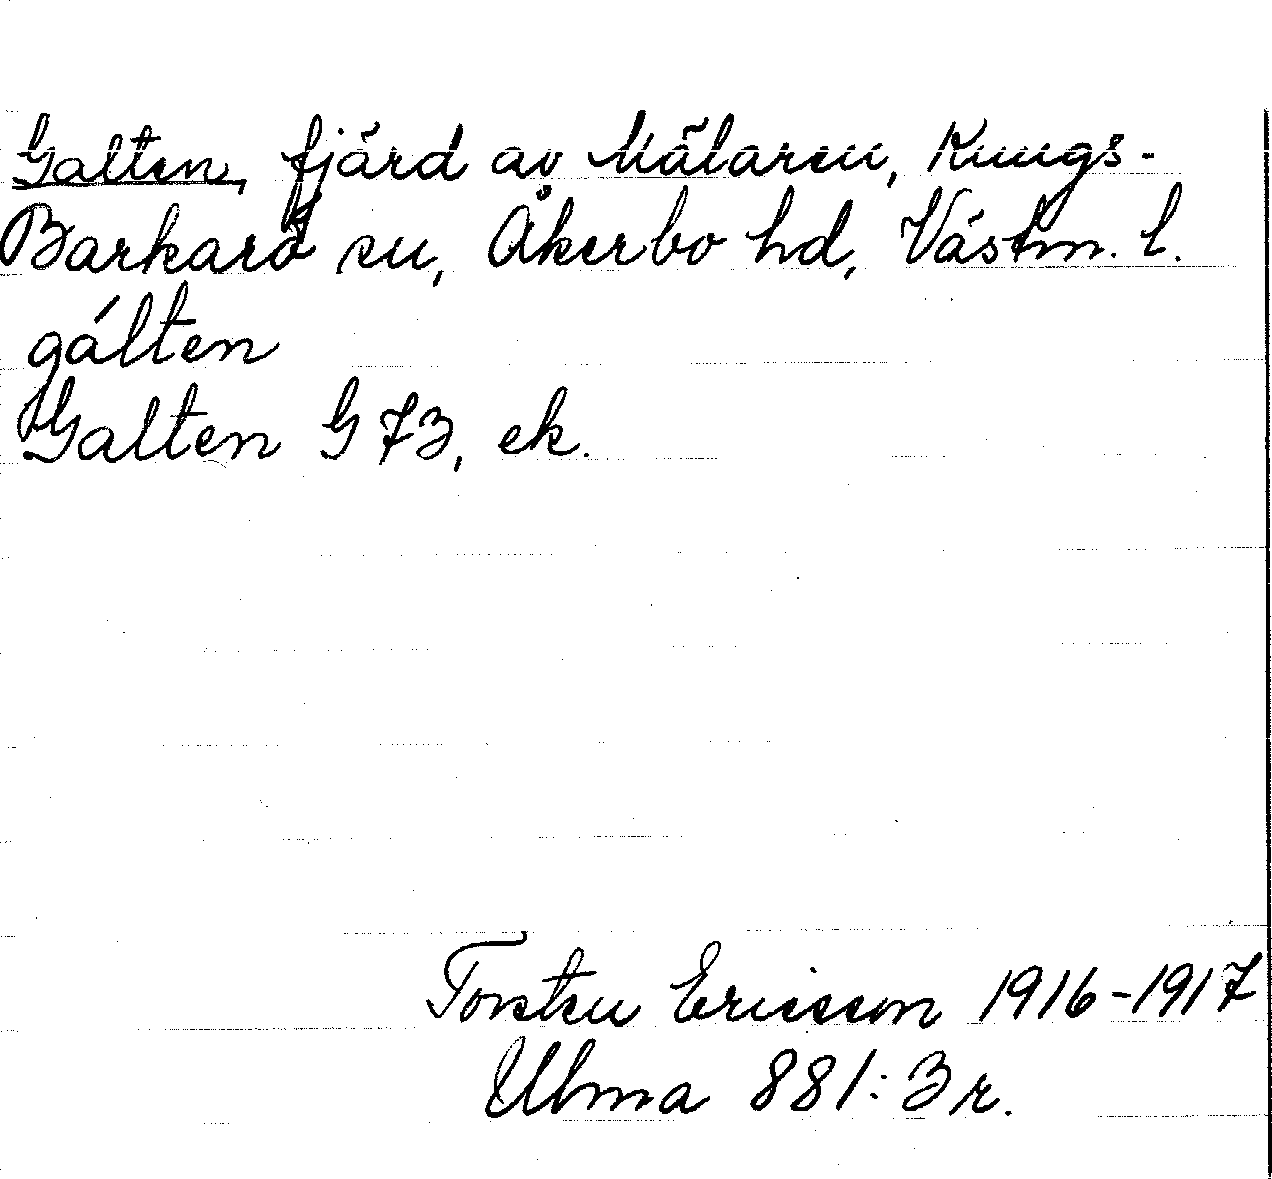 Galten, fjärd av Mälaren, Kungs-
Barkarö sn, Åkerbo hd, Västm. l.
gálten
Galten G 73, ek.
Torsten Ericsson 1916-1917
Ulma 881:3 r.